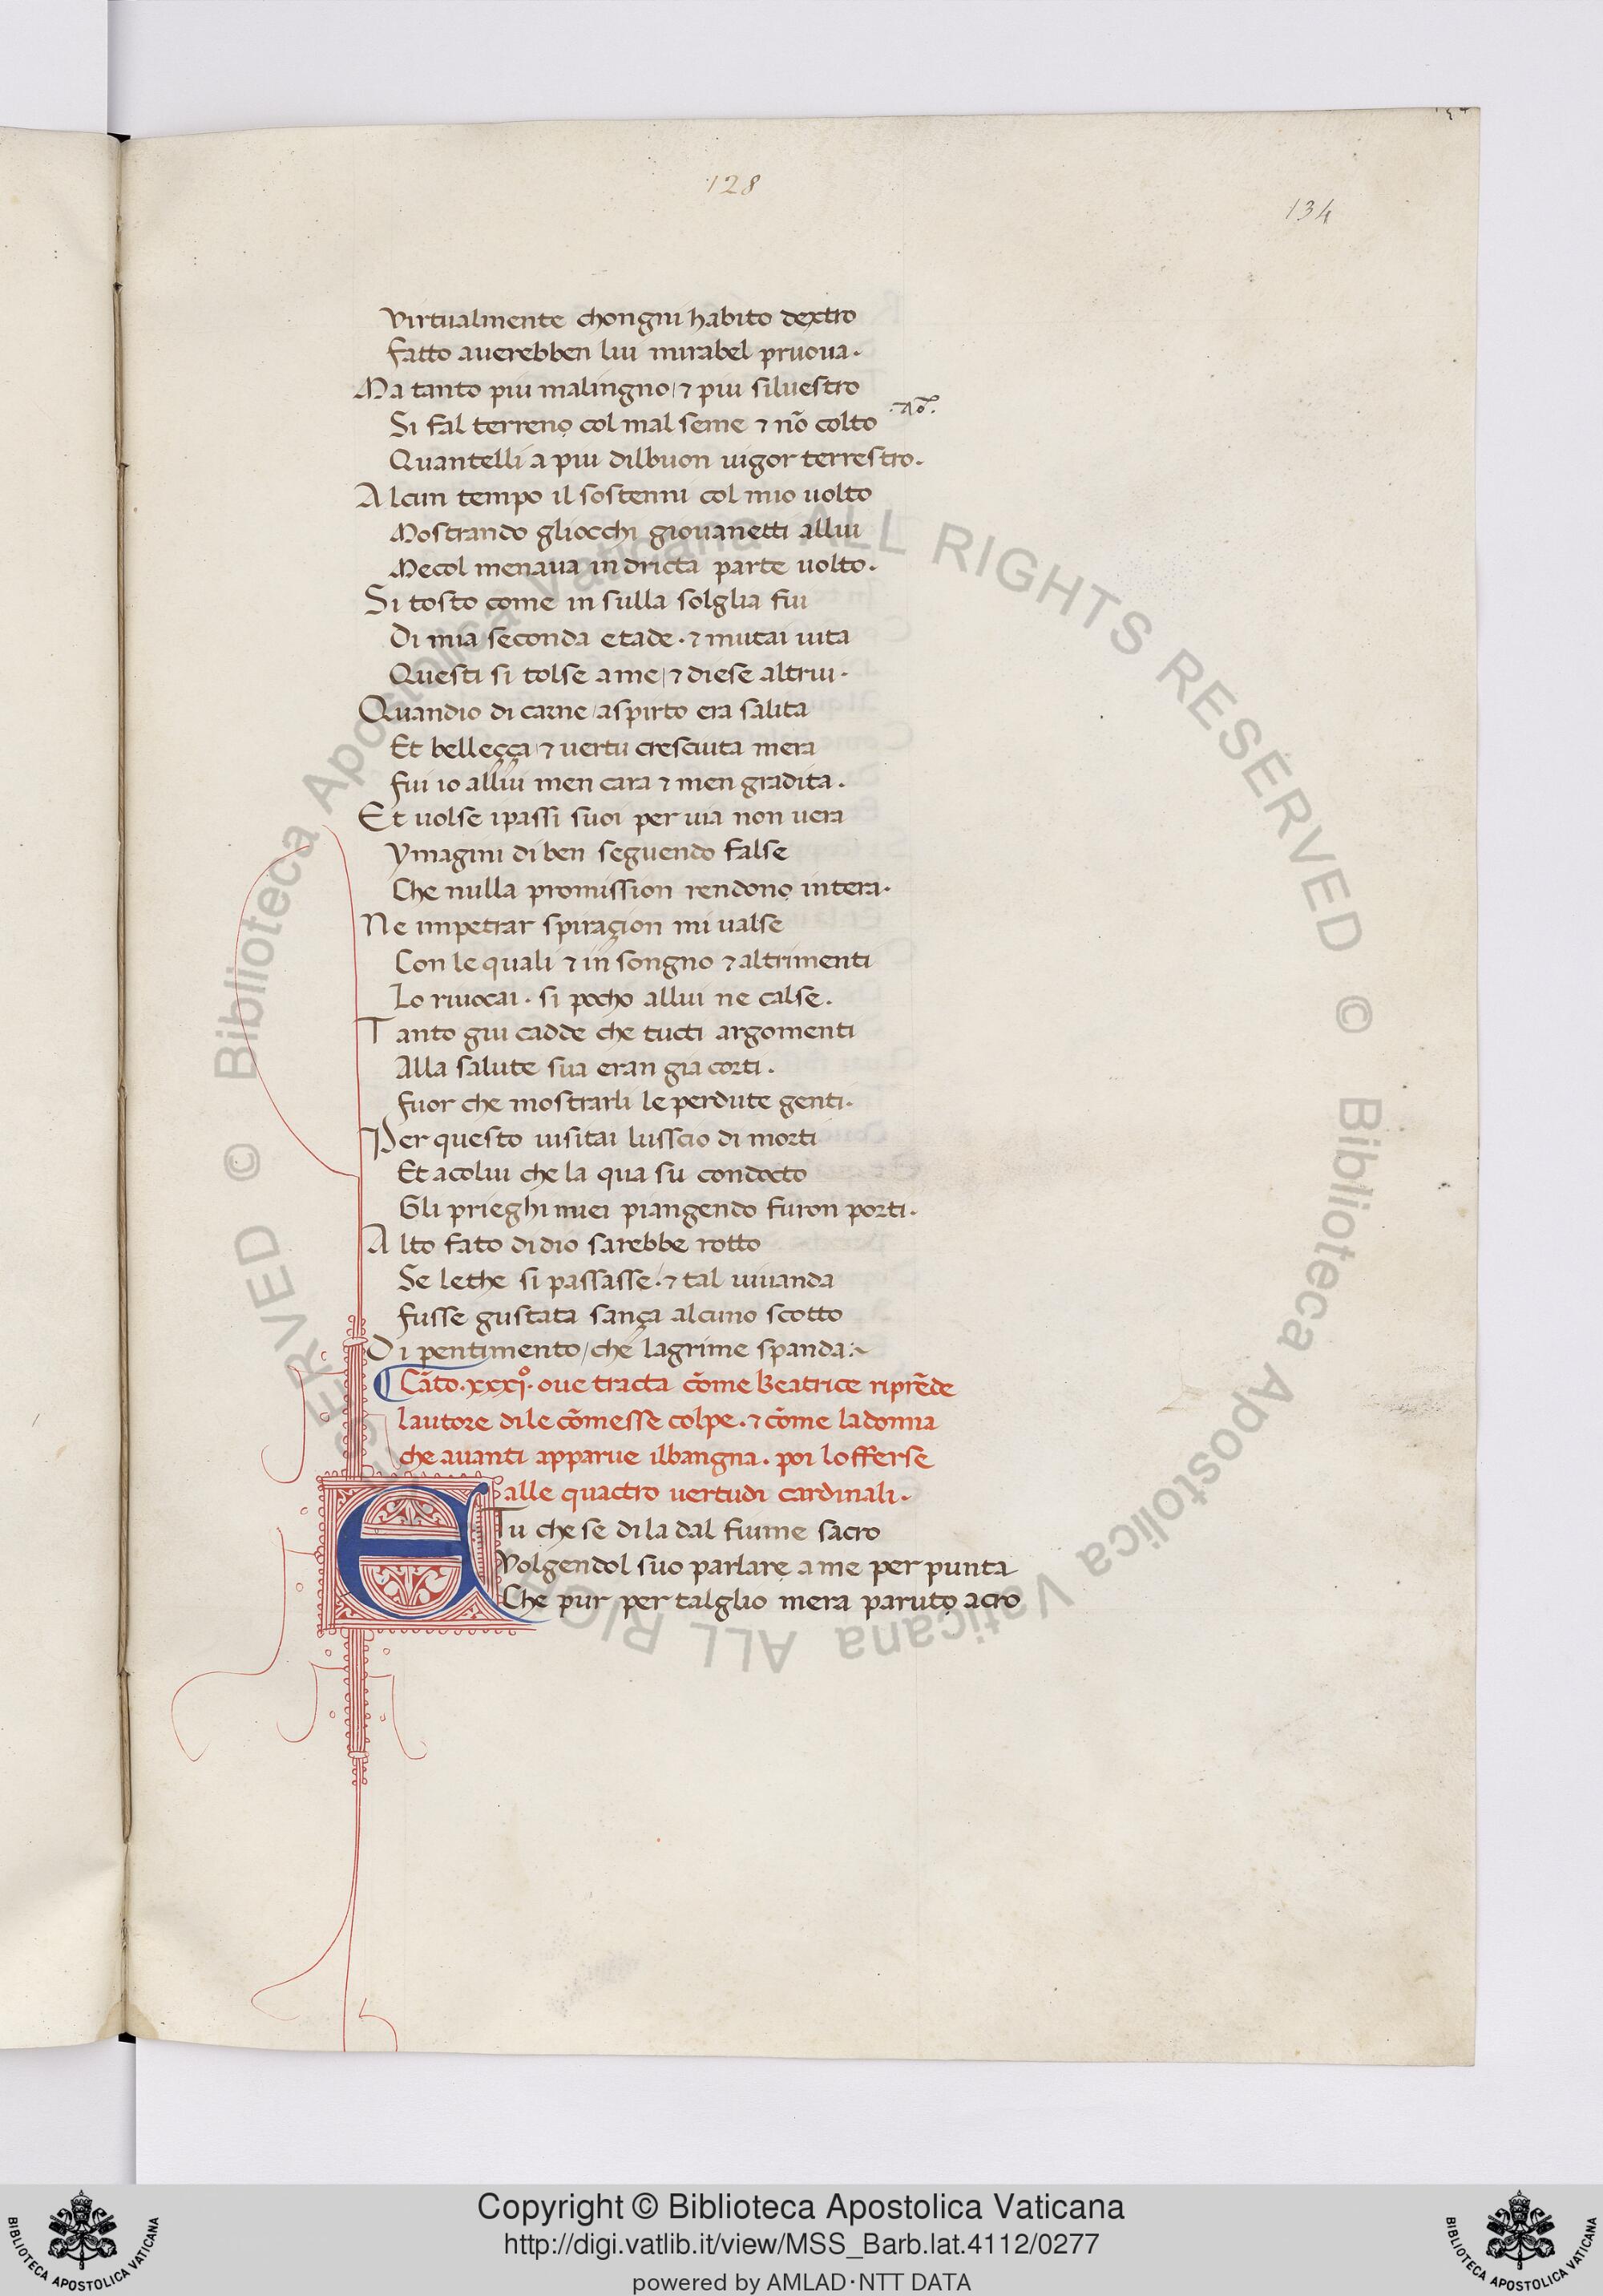 128
134
Virtualmente chongni habito dextro
Fatto auerebben lui mirabel pruoua.
Ma tanto piu malingno / ⁊ piu siluestro
.Ao.
Si fal terreno col mal seme ⁊ nō colto
Quantelli a piu dilbuon uigor terrestro.
Alcun tempo il sostenni col mio uolto
Mostrando gliocchi giouanetti allui
Mecol menaua in dricta parte uolto.
Si tosto come in sulla solglia fui
Di mia seconda etade. ⁊ mutai uita
Questi si tolse ame / ⁊ diese altrui.
Quandio di carne / aspirto era salita
Et belleçça / ⁊ uertu cresciuta mera
Fui io allui men cara ⁊ men gradita.
Et uolse ipassi suoi per uia non uera
Ymagini di ben seguendo false
Che nulla promission rendono intera.
Ne impetrar spiraçion mi ualse
Con le quali ⁊ in songno ⁊ altrimenti
Lo riuocai. si pocho allui ne calse.
Tanto giu cadde che tucti argomenti
Alla salute sua eran gia corti.
Fuor che mostrarli le perdute genti.
Per questo uisitai lusscio di morti
Et acolui che la qua su condocto
Gli prieghi miei piangendo furon porti.
Alto fato didio sarebbe rotto
Se lethe si passasse. ⁊ tal uiuanda
Fusse gustata sança alcuno scotto
Di pentimento / che lagrime spanda:~
Cāto.xxxjº. oue tracta cōme Beatrice riprēde
lautore dile cōmesse colpe. ⁊ cōme ladonna
che auanti apparue ilbangna. poi lofferse
alle quactro uertudi cardinali.
E Tu che se dila dal fiume sacro
Volgendol suo parlare ame per punta
Che pur per talglio mera paruto acro
© Biblioteca Apostolica Vaticana ALL RIGHTS RESERVED
© Biblioteca Apostolica Vaticana ALL RIGHTS RESERVED
Copyright © Biblioteca Apostolica Vaticana
http://digi.vatlib.it/view/MSS_Barb.lat.4112/0277
powered by AMLAD·NTT DATA
BIBLIOTECA APOSTOLICA VATICANA
BIBLIOTECA APOSTOLICA VATICANA